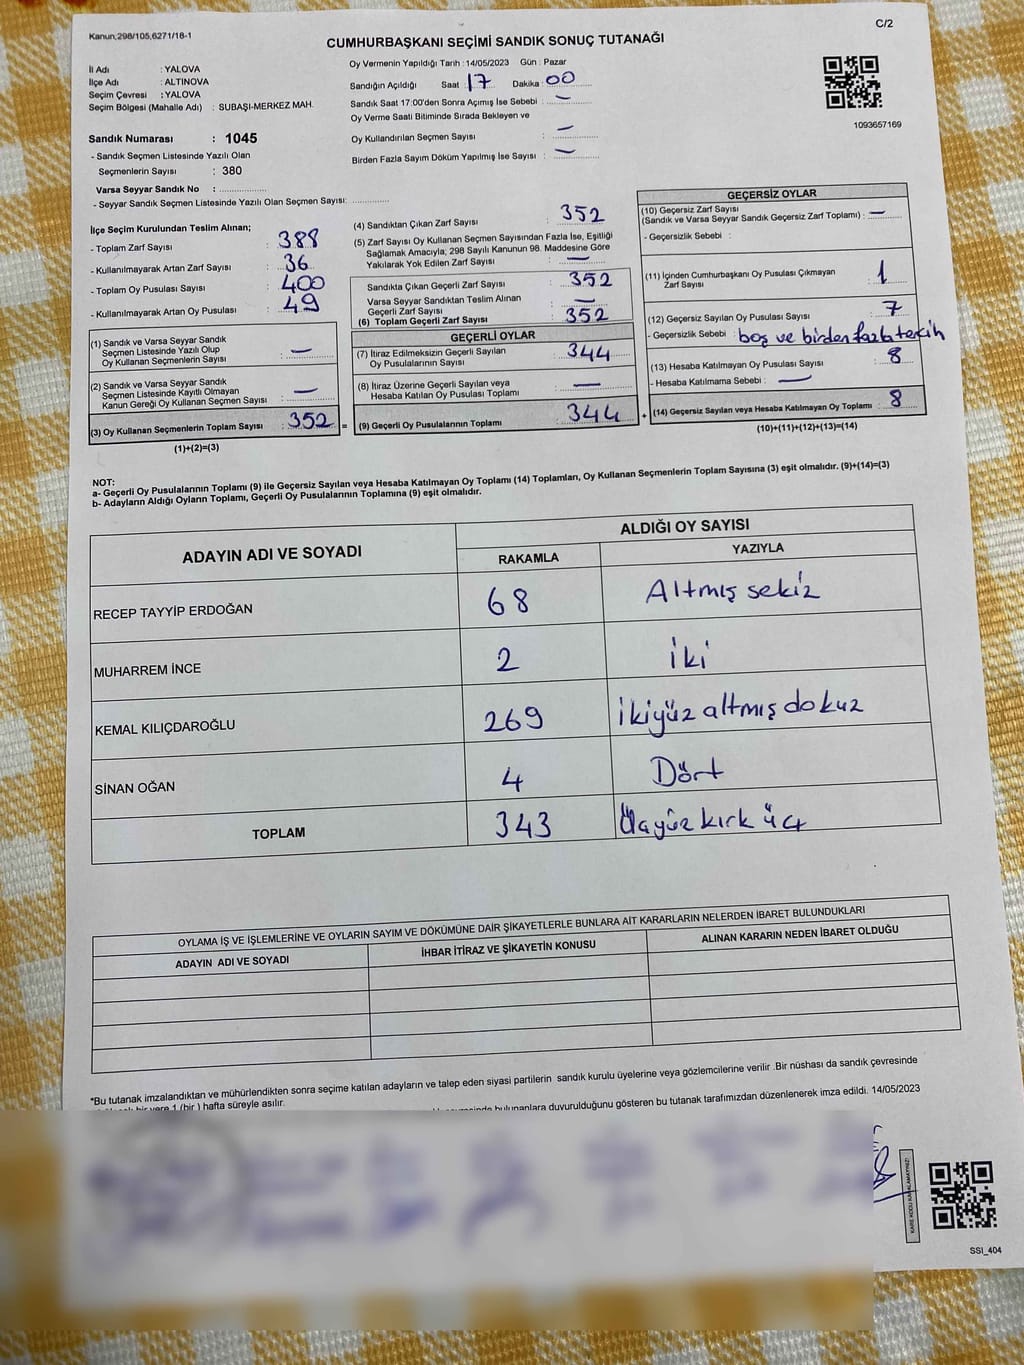 Kanun,298/105,6271/18-1
C/2
CUMHURBAŞKANI SEÇİMİ SANDIK SONUÇ TUTANAĞI
İl Adı : YALOVA
İlçe Adı : ALTINOVA
Seçim Çevresi : YALOVA
Seçim Bölgesi (Mahalle Adı) : SUBAŞI-MERKEZ MAH.
Sandık Numarası : 1045
- Sandık Seçmen Listesinde Yazılı Olan
Seçmenlerin Sayısı : 380
Varsa Seyyar Sandık No :
- Seyyar Sandık Seçmen Listesinde Yazılı Olan Seçmen Sayısı:
Oy Vermenin Yapıldığı Tarih :14/05/2023 Gün : Pazar
Sandığın Açıldığı Saat : 17 Dakika : 00
Sandık Saat 17:00'den Sonra Açımış İse Sebebi : —
Oy Verme Saati Bitiminde Sırada Bekleyen ve
Oy Kullandırılan Seçmen Sayısı : —
Birden Fazla Sayım Döküm Yapılmış İse Sayısı : —
1093657169
İlçe Seçim Kurulundan Teslim Alınan;
- Toplam Zarf Sayısı : 388
- Kullanılmayarak Artan Zarf Sayısı : 36
- Toplam Oy Pusulası Sayısı : 400
- Kullanılmayarak Artan Oy Pusulası : 49
(1) Sandık ve Varsa Seyyar Sandık
Seçmen Listesinde Yazılı Olup
Oy Kullanan Seçmenlerin Sayısı : —
(2) Sandık ve Varsa Seyyar Sandık
Seçmen Listesinde Kayıtlı Olmayan
Kanun Gereği Oy Kullanan Seçmen Sayısı : —
(3) Oy Kullanan Seçmenlerin Toplam Sayısı : 352 =
(1)+(2)=(3)
(4) Sandıktan Çıkan Zarf Sayısı : 352
(5) Zarf Sayısı Oy Kullanan Seçmen Sayısından Fazla İse, Eşitliği
Sağlamak Amacıyla; 298 Sayılı Kanunun 98. Maddesine Göre
Yakılarak Yok Edilen Zarf Sayısı : —
Sandıkta Çıkan Geçerli Zarf Sayısı : 352
Varsa Seyyar Sandıktan Teslim Alınan
Geçerli Zarf Sayısı : —
(6) Toplam Geçerli Zarf Sayısı : 352
GEÇERLİ OYLAR
(7) İtiraz Edilmeksizin Geçerli Sayılan
Oy Pusulalarının Sayısı : 344
(8) İtiraz Üzerine Geçerli Sayılan veya
Hesaba Katılan Oy Pusulası Toplamı : —
(9) Geçerli Oy Pusulalarının Toplamı : 344 +
GEÇERSİZ OYLAR
(10) Geçersiz Zarf Sayısı
(Sandık ve Varsa Seyyar Sandık Geçersiz Zarf Toplamı) : —
- Geçersizlik Sebebi :
(11) İçinden Cumhurbaşkanı Oy Pusulası Çıkmayan
Zarf Sayısı : 1
(12) Geçersiz Sayılan Oy Pusulası Sayısı : 7
- Geçersizlik Sebebi : boş ve birden fazla tercih
(13) Hesaba Katılmayan Oy Pusulası Sayısı : 8
- Hesaba Katılmama Sebebi : —
(14) Geçersiz Sayılan veya Hesaba Katılmayan Oy Toplamı : 8
(10)+(11)+(12)+(13)=(14)
NOT:
a- Geçerli Oy Pusulalarının Toplamı (9) ile Geçersiz Sayılan veya Hesaba Katılmayan Oy Toplamı (14) Toplamları, Oy Kullanan Seçmenlerin Toplam Sayısına (3) eşit olmalıdır. (9)+(14)=(3)
b- Adayların Aldığı Oyların Toplamı, Geçerli Oy Pusulalarının Toplamına (9) eşit olmalıdır.
ADAYIN ADI VE SOYADI
ALDIĞI OY SAYISI
RAKAMLA YAZIYLA
RECEP TAYYİP ERDOĞAN 68 Altmış sekiz
MUHARREM İNCE 2 iki
KEMAL KILIÇDAROĞLU 269 ikiyüz altmış dokuz
SİNAN OĞAN 4 Dört
TOPLAM 343 Üçyüz kırk üç
OYLAMA İŞ VE İŞLEMLERİNE VE OYLARIN SAYIM VE DÖKÜMÜNE DAİR ŞİKAYETLERLE BUNLARA AİT KARARLARIN NELERDEN İBARET BULUNDUKLARI
ADAYIN ADI VE SOYADI İHBAR İTİRAZ VE ŞİKAYETİN KONUSU ALINAN KARARIN NEDEN İBARET OLDUĞU
*Bu tutanak imzalandıktan ve mühürlendikten sonra seçime katılan adayların ve talep eden siyasi partilerin sandık kurulu üyelerine veya gözlemcilerine verilir .Bir nüshası da sandık çevresinde
yere 1 (bir ) hafta süreyle asılır.
bulunanlara duyurulduğunu gösteren bu tutanak tarafımızdan düzenlenerek imza edildi. 14/05/2023
SSI_404